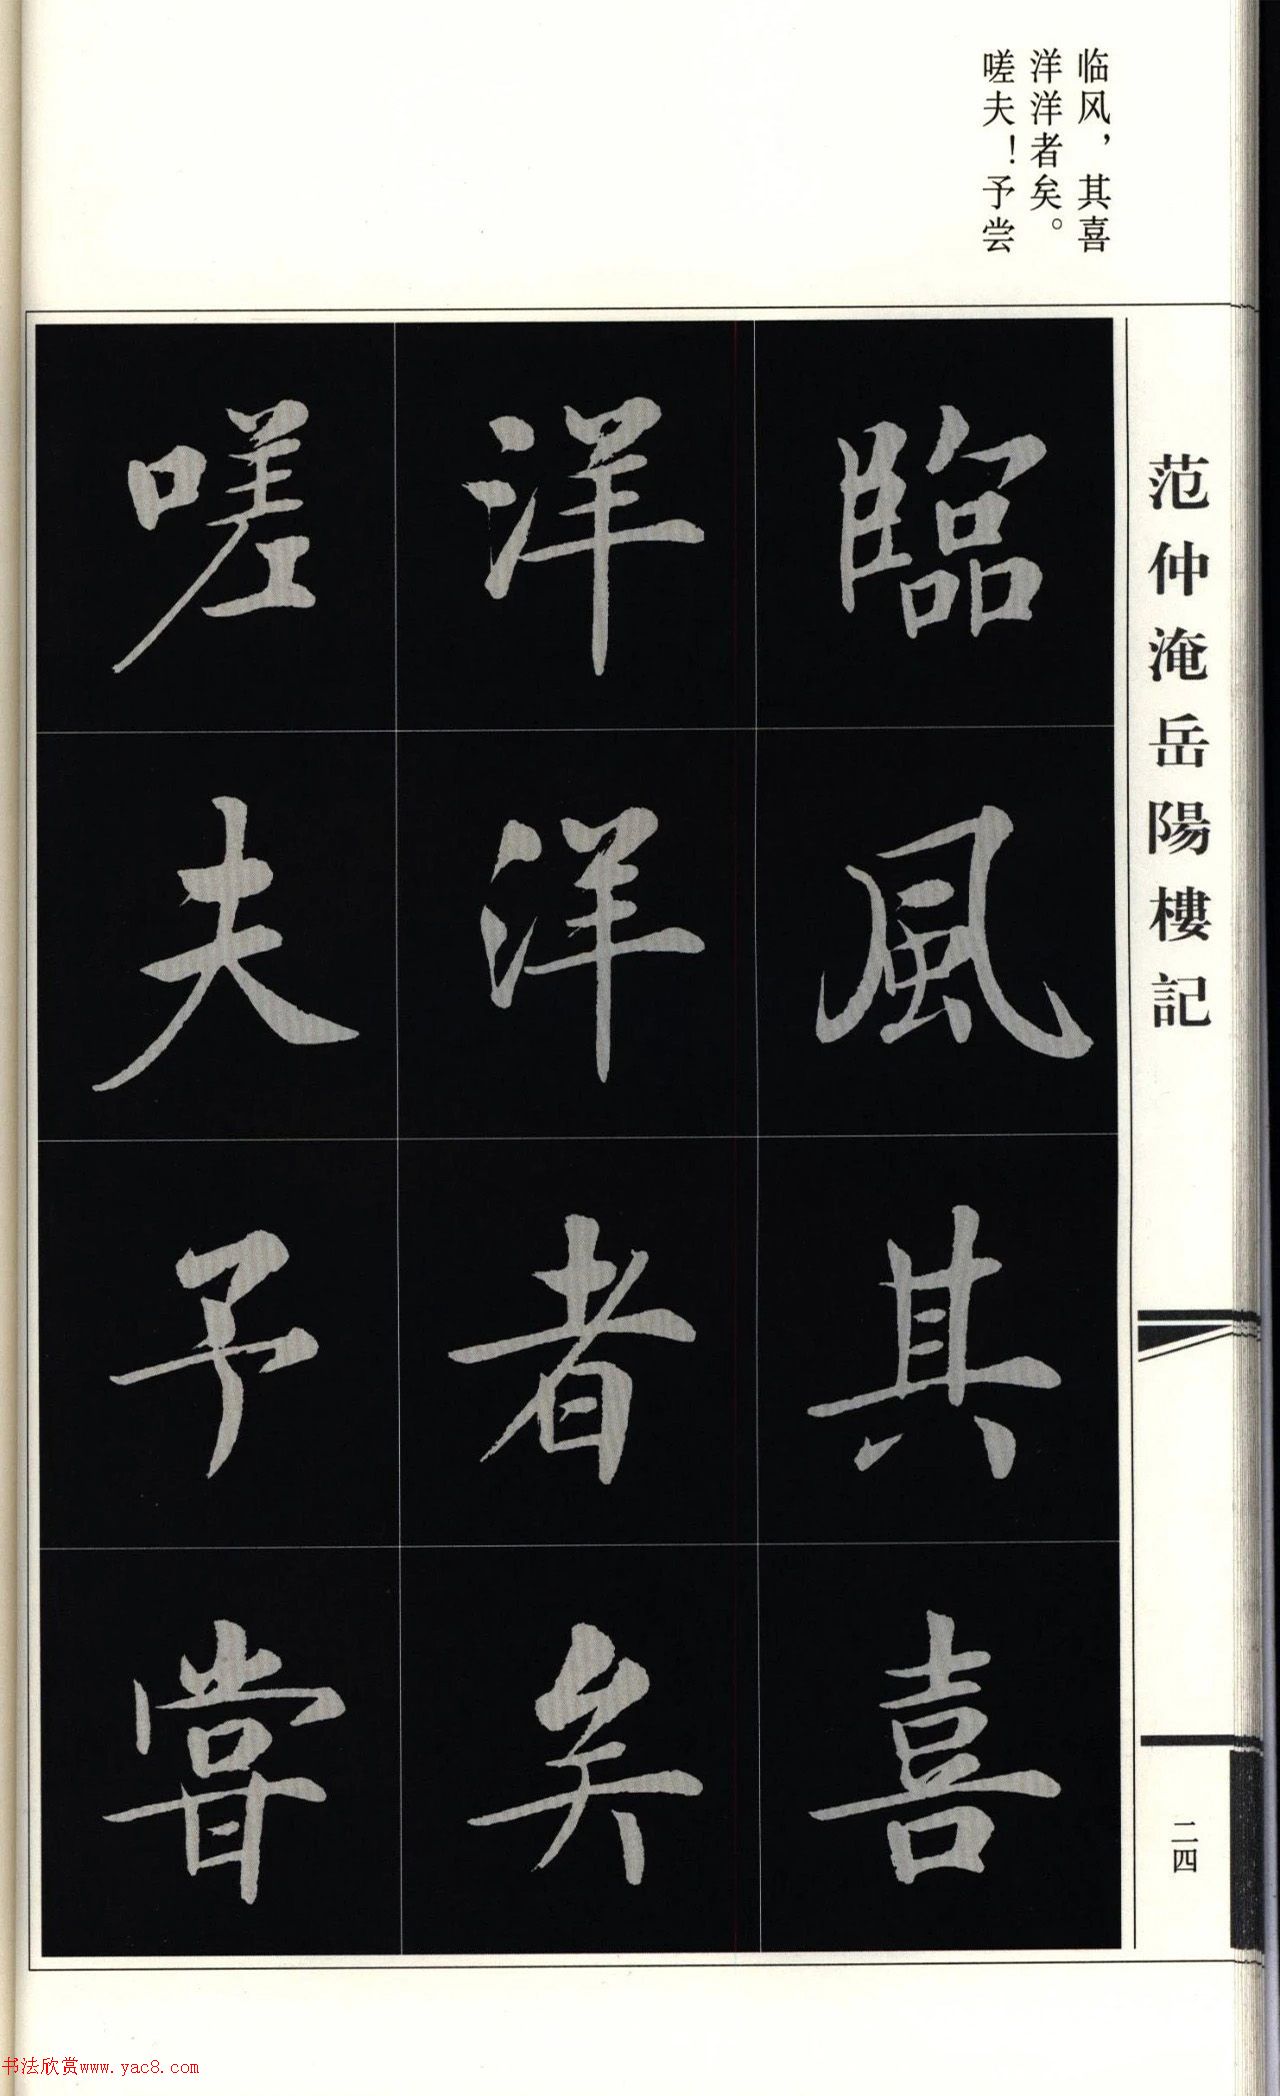 临风，其喜
洋洋者矣。
嗟夫！予尝
范仲淹岳陽樓記
臨風其喜
洋洋者矣
嗟夫予嘗
二四
书法欣赏www.yac8.com